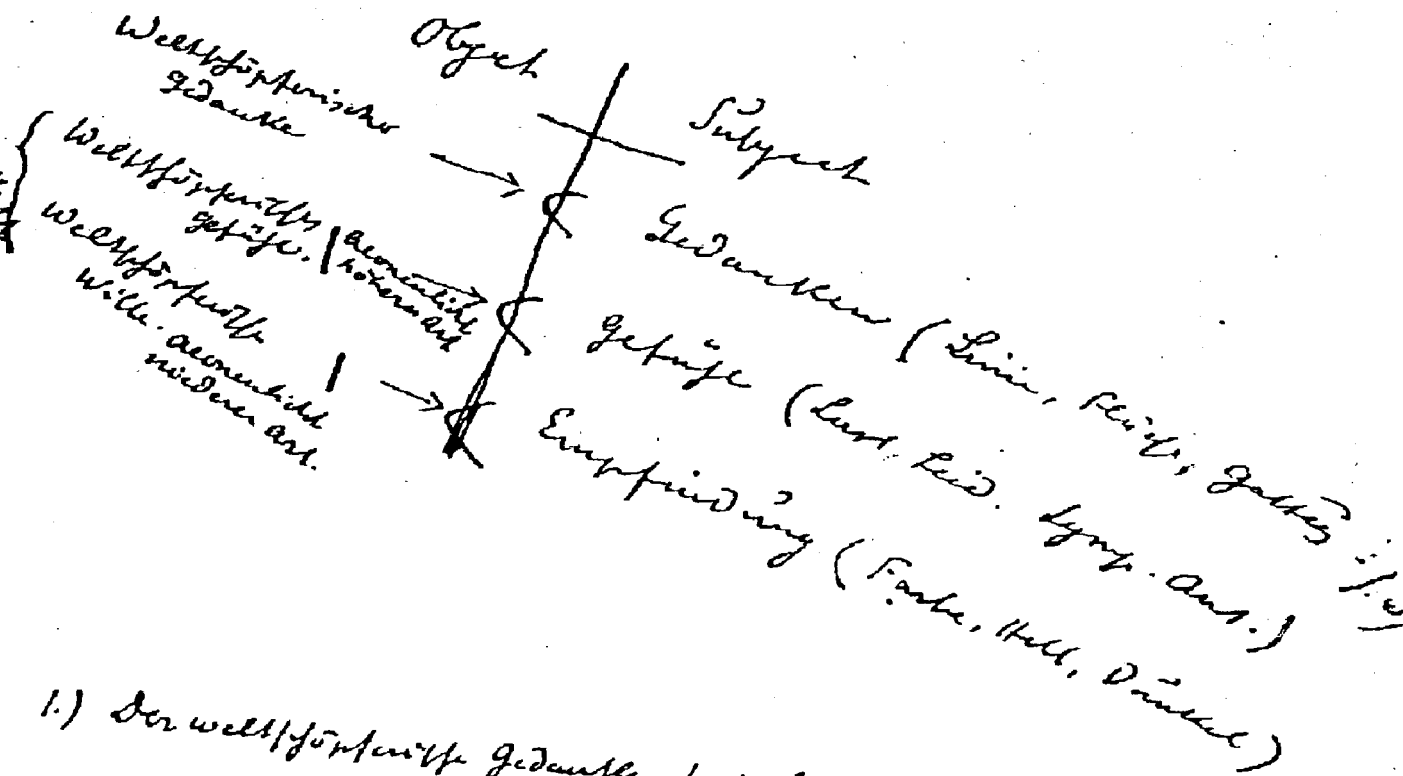 Object
Subject
Weltschöpferischer
Gedanke
Weltschöpferisches
Gefühl.
Aeonenlicht
höherer Art
Weltschöpferische
Wille.
Aeonenlicht
niederer Art.
Gedanken (Linie, Fläche, Gestalt u. s. w)
Gefühl (Lust, Leid. Symp. Ant.)
Empfindung (Farbe, Hell, Dunkel)
1.) Der weltschöpferische Gedanke